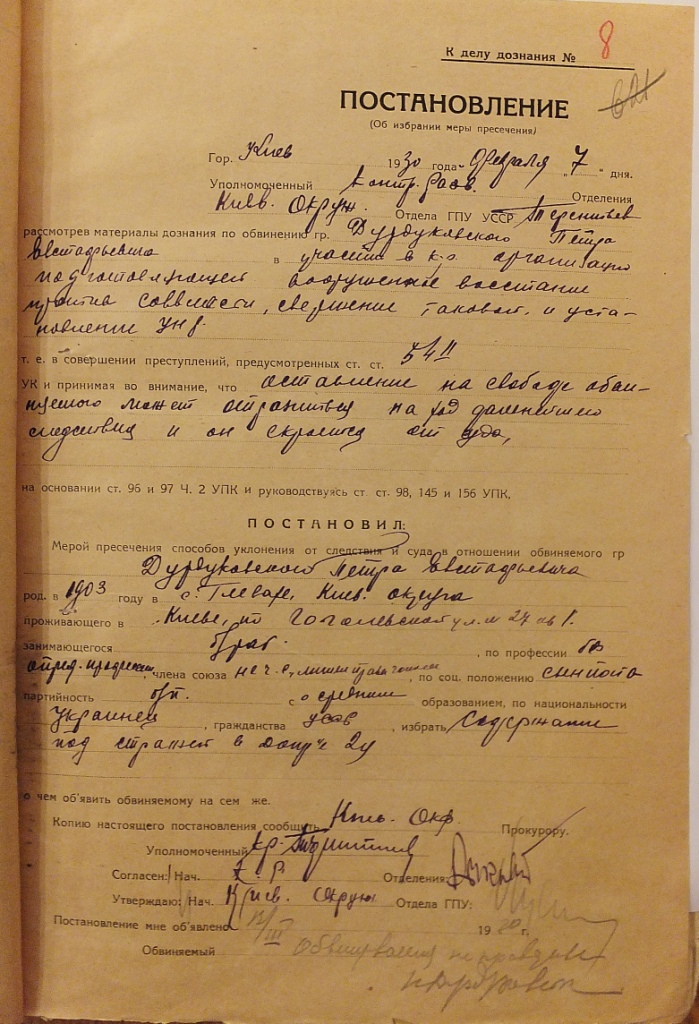 К делу дознания № 8
ПОСТАНОВЛЕНИЕ
(Об избрании меры пресечения)
Гор. Киев 1930 года Февраля "7" дня.
Уполномоченный Контр. разв. Отделения
Киев. Окруж. Отдела ГПУ УССР Терентьев
рассмотрев материалы дознания по обвинению гр. Дурдуковского Петра
Евстафьевича в участии в к.р. организации
подготовляющей вооруженное восстание
против соввласти, свержение таковой и уста-
новление УНР.
т. е. в совершении преступлений, предусмотренных ст. ст. 54 II
УК и принимая во внимание, что оставление на свободе обви-
няемого может отразиться на ход дальнейшего
следствия и он скроется от суда,
на основании ст. 96 и 97 Ч. 2 УПК и руководствуясь ст. ст. 98, 145 и 156 УПК.
ПОСТАНОВИЛ:
Мерой пресечения способов уклонения от следствия и суда в отношении обвиняемого гр
Дурдуковского Петра Евстафьевича
род. в 1903 году в с. Киев. округа
проживающего в г. Киеве, по Гоголевской ул. № 27 кв 1.
занимающегося , по профессии без
опред. профессии, члена союза не ч. с, , по соц. положению сын попа
партийность б/п. с о средним образованием, по национальности
Украинец, гражданства УССР, избрать содержание
под стражей в Допр'е 2м
о чем об'явить обвиняемому на сем же.
Копию настоящего постановления сообщить Киев. Окр. Прокурору.
Уполномоченный
Согласен: Нач. К. Р. Отделения:
Утверждаю: Нач. Киев. Окруж. Отдела ГПУ:
Постановление мне об'явлено 12/III 1930 г.
Обвиняемый Обвинения неправдивы